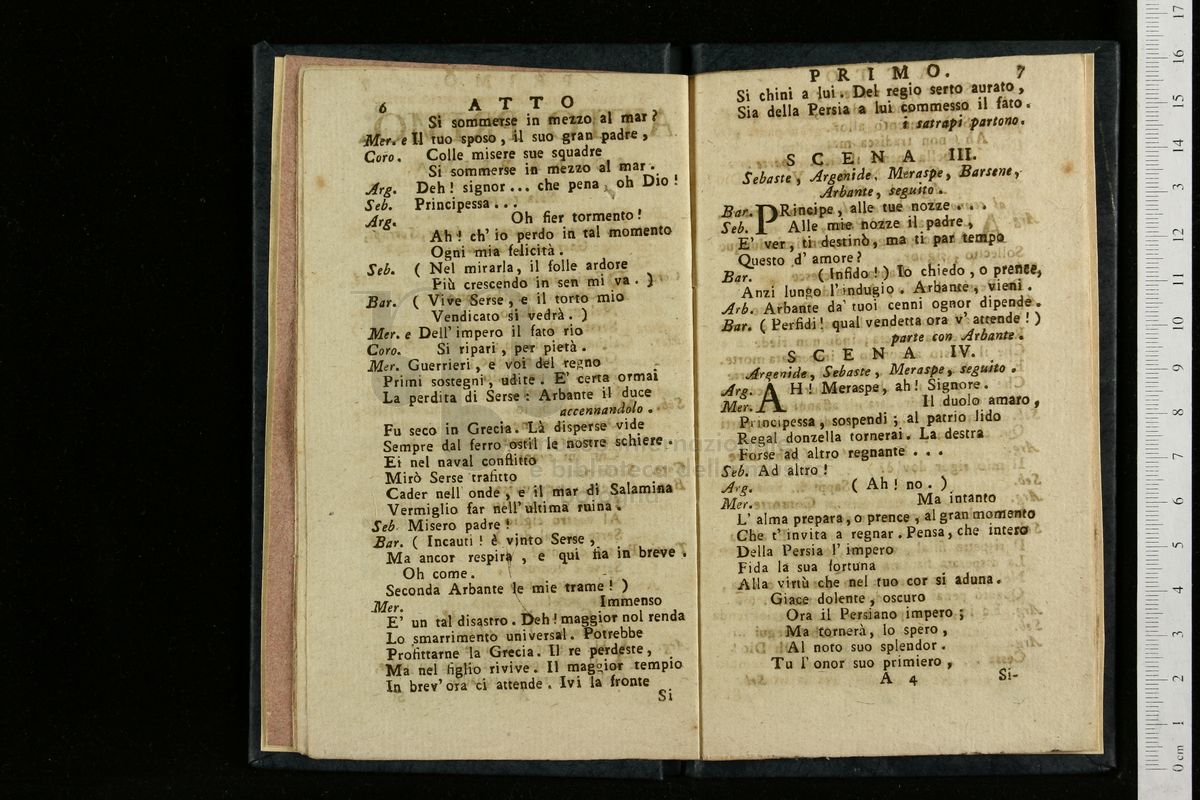 6 A T T O
Si sommerse in mezzo al mar?
Mer. e Il tuo sposo, il suo gran padre,
Coro. Colle misere sue squadre
Si sommerse in mezzo al mar.
Arg. Deh! signor... che pena, oh Dio!
Seb. Principessa...
Arg. Oh fier tormento!
Ah! ch' io perdo in tal momento
Ogni mia felicità.
Seb. ( Nel mirarla, il folle ardore
Più crescendo in sen mi va. )
Bar. ( Vive Serse, e il torto mio
Vendicato si vedrà. )
Mer. e Dell' impero il fato rio
Coro. Si ripari, per pietà.
Mer. Guerrieri, e voi del regno
Primi sostegni, udite. E' certa ormai
La perdita di Serse: Arbante il duce
accennandolo.
Fu seco in Grecia. Là disperse vide
Sempre dal ferro ostil le nostre schiere.
Ei nel naval conflitto
Mirò Serse trafitto
Cader nell' onde, e il mar di Salamina
Vermiglio far nell' ultima ruina.
Seb. Misero padre!
Bar. ( Incauti! è vinto Serse,
Ma ancor respira, e qui fia in breve.
Oh come.
Seconda Arbante le mie trame! )
Mer. Immenso
E' un tal disastro. Deh! maggior nol renda
Lo smarrimento universal. Potrebbe
Profittarne la Grecia. Il re perdeste,
Ma nel figlio rivive. Il maggior tempio
In brev' ora ci attende. Ivi la fronte
Si
P R I M O. 7
Si chini a lui. Del regio serto aurato,
Sia della Persia a lui commesso il fato.
i satrapi partono.
S C E N A III.
Sebaste, Argenide, Meraspe, Barsene,
Arbante, seguito.
Bar. PRincipe, alle tue nozze...
Seb. Alle mie nozze il padre,
E' ver, ti destinò, ma ti par tempo
Questo d' amore?
Bar. (Infido!) Io chiedo, o prence,
Anzi lungo l' indugio. Arbante, vieni.
Arb. Arbante da' tuoi cenni ognor dipende.
Bar. ( Perfidi! qual vendetta ora v' attende! )
parte con Arbante.
S C E N A IV.
Argenide, Sebaste, Meraspe, seguito.
Arg. AH! Meraspe, ah! Signore.
Mer. Il duolo amaro,
Principessa, sospendi; al patrio lido
Regal donzella tornerai. La destra
Forse ad altro regnante...
Seb. Ad altro!
Arg. ( Ah! no. )
Mer. Ma intanto
L' alma prepara, o prence, al gran momento
Che t' invita a regnar. Pensa, che intero
Della Persia l' impero
Fida la sua fortuna
Alla virtù che nel tuo cor si aduna.
Giace dolente, oscuro
Ora il Persiano impero;
Ma tornerà, lo spero,
Al noto suo splendor.
Tu l' onor suo primiero,
A 4 Si-